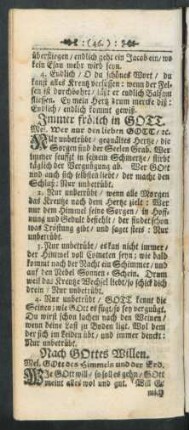 : (46.) :
überstiegen / endlich geht ein Jacob ein / wo
kein Esau mehr wird seyn.
4. Endlich / O du schönes Wort / du
kanst alles Creutz versüssen: wenn der Fel-
sen ist durchbohrt / läst er endlich Balsam
fliessen. Ey mein Hertz drum mercke diß:
Endlich / endlich kommt gewiß.
Immer frölich in GOTT.
Mel. Wer nur den lieben GOTT / ꝛc.
Nur unbetrübt / gequältes Hertze / die
Sorgen sind der Seelen Grab. Wer
immer seuffzt in seinem Schmertze / stirbt
täglich der Vergnügung ab. Wer GOtt
und auch sich selbsten liebt / der macht den
Schluß: Nur unbetrübt.
2. Nur unbetrübt / wenn alle Morgen
das Creutze nach dem Hertze zielt: Wer
nur dem Himmel seine Sorgen / in Hoff-
nung und Gedult befiehlt / der findet schon
was Tröstung gibt / und saget stets: Nur
unbetrübt.
3. Nur unbetrübt / es kan nicht immer /
der Himmel voll Cometen seyn; wie bald
kommt nach der Nacht ein Schimmer / und
auf den Nebel Sonnen-Schein. Drum
weil das Creutz Wechsel liebt / so schick dich
drein / Nur unbetrübt.
4. Nur unbetrübt / GOTT kennt die
Seinen; wie GOtt es fügt / so sey vergnügt.
Du wirst schon lachen nach dem Weinen /
wenn deine Last zu Boden ligt. Wol dem
der sich im Leiden übt / und immer denckt:
Nur unbetrübt.
Nach GOttes Willen.
Mel. GOtt des Himmels und der Erd.
Wie GOtt will / so soll es gehn / Gott
meint alles wol und gut. Will Er
mich